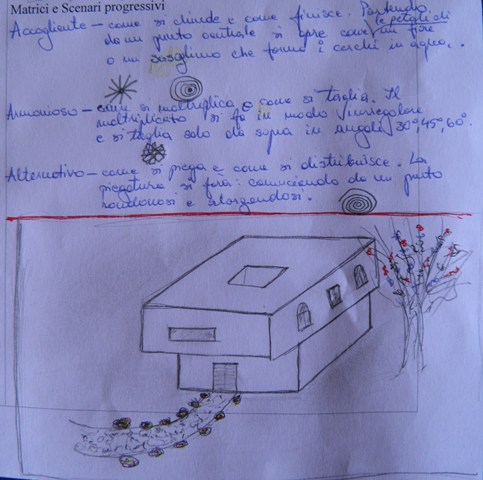 Matrici e Scenari progressivi
Accogliente – come si chiude e come finisce. Partendo
da un punto centrale si apre come i petali di un fiore
o un sassolino che forma i cerchi in acqua.
Armonioso – come si moltiplica e come si taglia. Il
moltiplicarsi si fa in modo irregolare
e si taglia solo da sopra in angoli 30°, 45°, 60°.
Alternativo – come si piega e come si distribuisce. La
piegatura si farà: cominciando da un punto
rotolandosi e allargandosi.